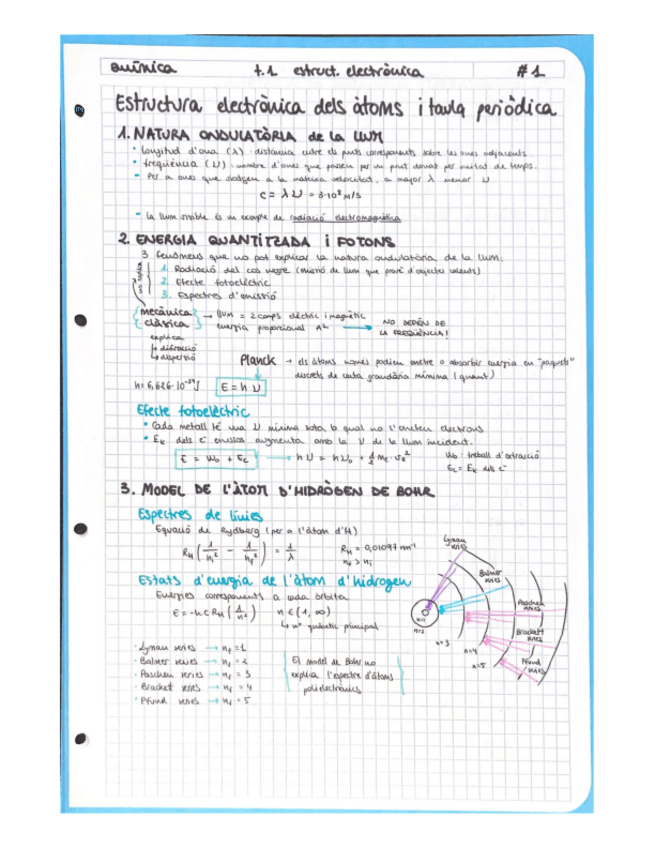 QUÍMICA t.1 estruct. electrònica #1
Estructura electrònica dels àtoms i taula periòdica
1. NATURA ONDULATÒRIA de la LLUM
• longitud d'ona (λ): distància entre els punts corresponents sobre les ones adjacents.
• freqüència (ν): nombre d'ones que passen per un punt donat per unitat de temps.
- Per a ones que viatgen a la mateixa velocitat, a major λ menor ν
c = λν = 3·10⁸ m/s
- La llum visible és un exemple de radiació electromagnètica
2. ENERGIA QUANTITZADA i FOTONS
3 fenòmens que no pot explicar la natura ondulatòria de la llum:
1. Radiació del cos negre (emissió de llum que prové d'objectes calents)
2. Efecte fotoelèctric
3. Espectres d'emissió
no explica
mecànica clàssica → llum = 2 camps elèctric i magnètic
energia proporcional A² → NO DEPÈN DE LA FREQÜÈNCIA!
explica
↳ difracció
↳ dispersió
Planck → els àtoms només poden emetre o absorbir energia en "paquets"
discrets de certa grandària mínima (quant)
h = 6,626·10⁻³⁴ J E = h ν
Efecte fotoelèctric
• Cada metall té una ν mínima sota la qual no s'emeten electrons
• Ek dels e⁻ emesos augmenta amb la ν de la llum incident.
E = W₀ + Ec → hν = hν₀ + 1/2 me·ve² W₀: treball d'extracció
Ec = Ek dels e⁻
3. MODEL DE L'ÀTOM D'HIDRÒGEN DE BOHR
Espectres de línies
Equació de Rydberg (per a l'àtom d'H)
RH (1/ni² - 1/nf²) = 1/λ RH = 0,01097 nm⁻¹
nf > ni
Estats d'energia de l'àtom d'hidrogen
Energies corresponents a cada òrbita
E = -hcRH (1/n²) n ∈ (1, ∞)
↳ nº quàntic principal
• Lyman series → nf = 1
• Balmer series → nf = 2
• Paschen series → nf = 3
• Brackett series → nf = 4
• Pfund series → nf = 5
El model de Bohr no
explica l'espectre d'àtoms
polielectrònics
Lyman series
Balmer series
Paschen series
Brackett series
Pfund series
n=1
n=2
n=3
n=4
n=5